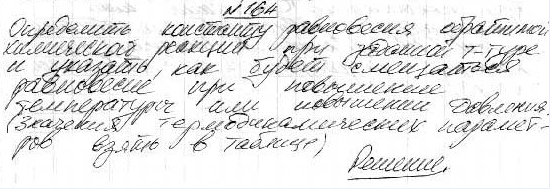 №164
Определить константу равновесия обратимой
химической реакции при заданной т-туре
и указать, как будет смещаться
равновесие при повышение
температуры или повышении давления.
(Значения термодинамических парамет-
ров взять в таблице)
Решение.